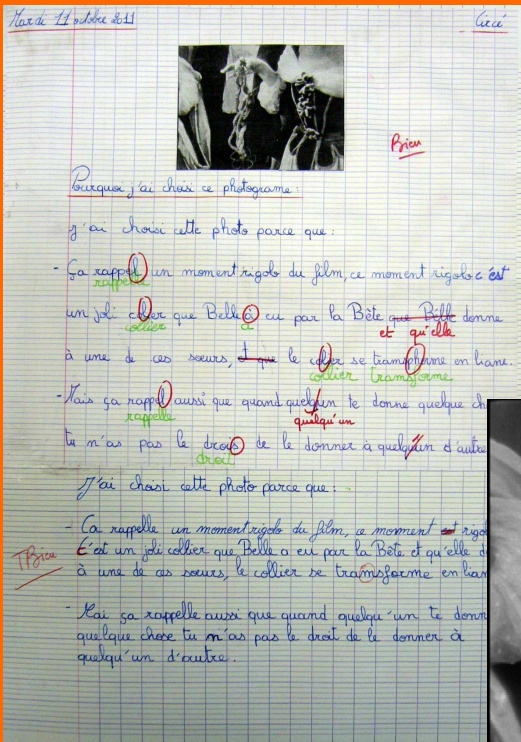 Mardi 11 octobre 2011 Circé
Bien
Pourquoi j'ai choisi ce photograme :
J'ai choisi cette photo parce que :
- Ça rappel un moment rigolo du film, ce moment rigolo c'est
rappelle
un joli colier que Belle à eu par la Bête que Belle donne
collier a et qu'elle
à une de ces sœurs, et que le colier se transpherme en liane.
collier transforme
- Mais ça rappel aussi que quand quelqun te donne quelque ch
rappelle quelqu'un
tu n'as pas le drois de le donner à quelqun d'autre
droit
J'ai choisi cette photo parce que :
- Ca rappelle un moment rigolo du film, ce moment est rigol
TBien
C'est un joli collier que Belle a eu par la Bête et qu'elle d
à une de ces sœurs, le collier se transforme en lian
- Mai ça rappelle aussi que quand quelqu'un te donn
quelque chose tu n'as pas le droit de le donner à
quelqu'un d'autre.